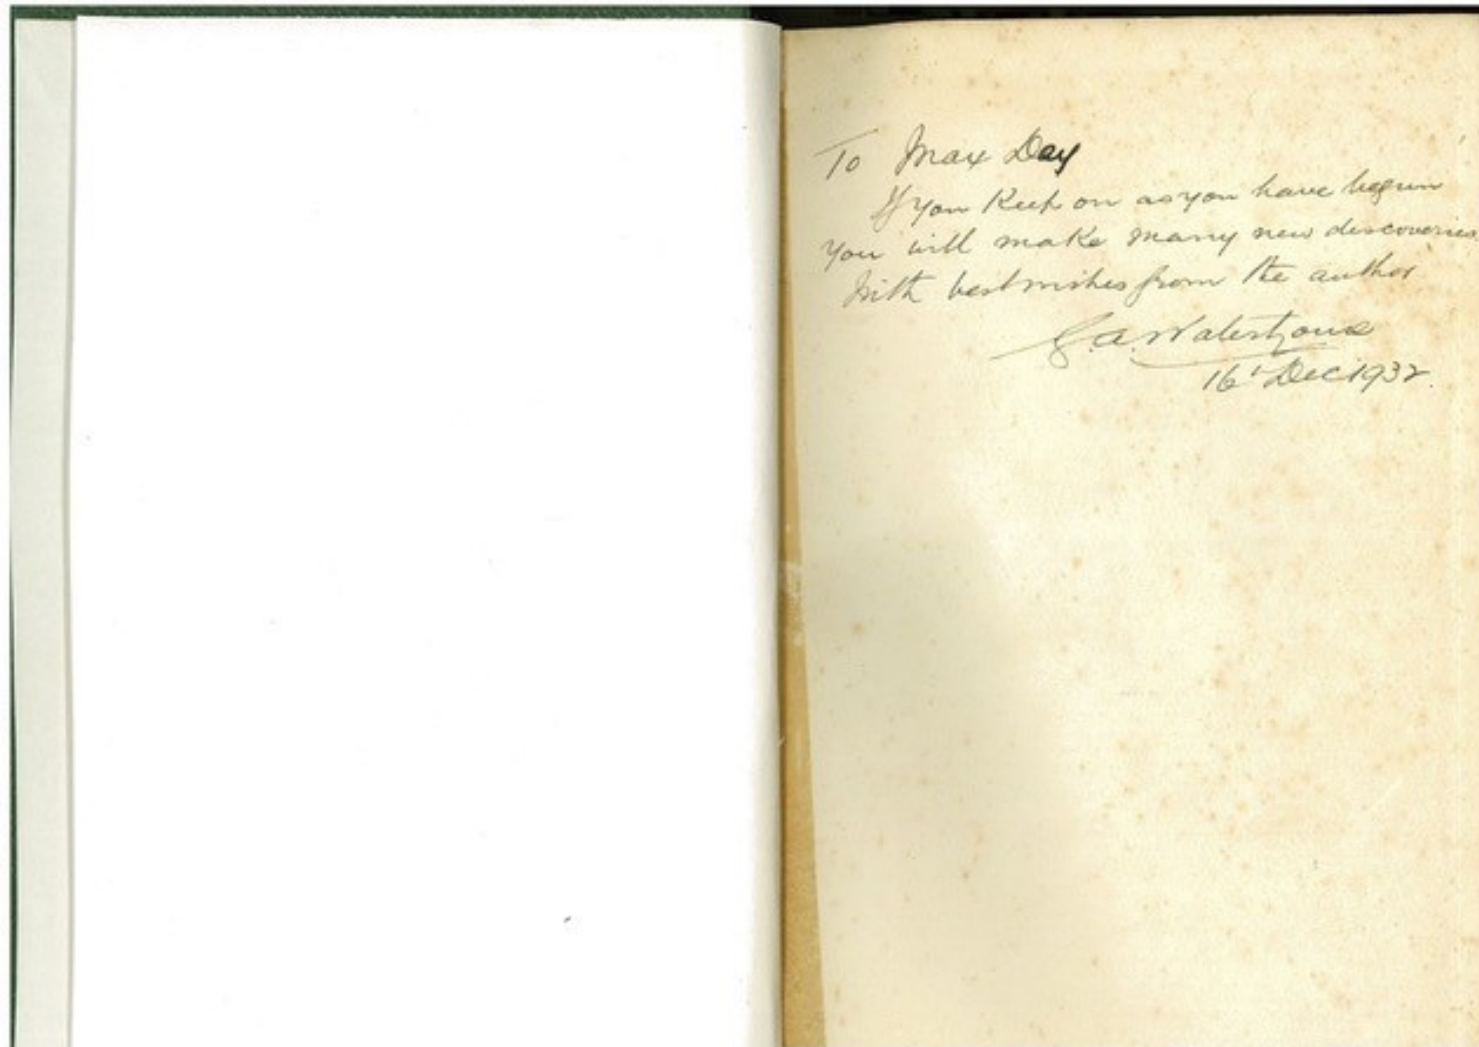 To Max Day
If you Keep on as you have begun
You will make many new discoveries
With best wishes from the author
G.A. Waterhouse
16' Dec 1932.